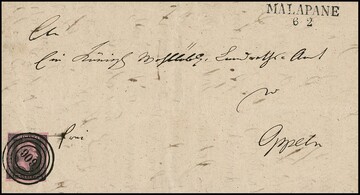 MALAPANE
6 2
An
Ein Königl Wohllöbl. Landraths-Amt
zu
frei
Oppeln